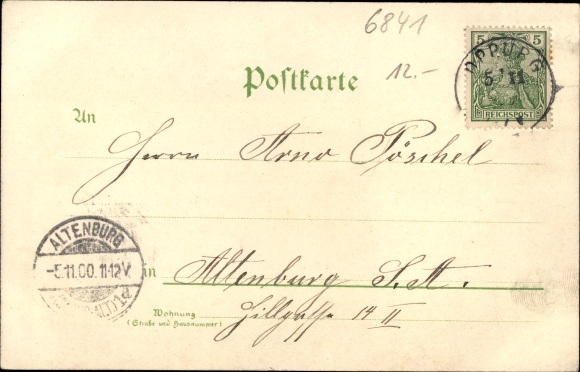 6841
5 5
OPPURG
5 11
REICHSPOST
12.-
Postkarte
An
Herrn Arno Pöschel
ALTENBURG
-5.11.00.11-12V.
in Altenburg S.-A.
Wohnung
(Straße und Hausnummer)
Hillgasse 14 II